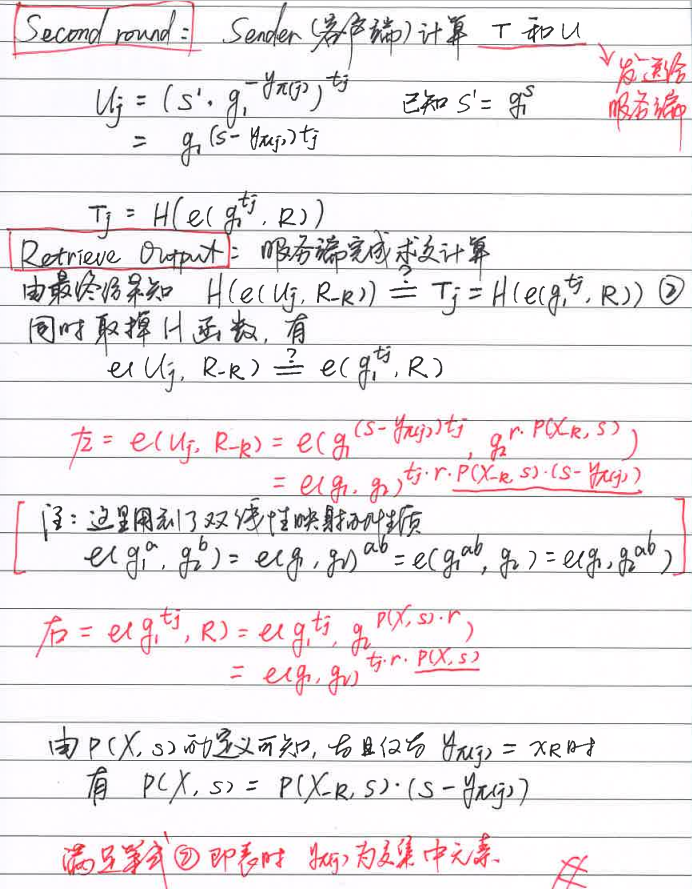 Second round: Sender (客户端) 计算 T 和 U
↘ 发送给
服务端
Uj = (s'·g₁^{-yπ(j)})^{tj} 已知 S' = g₁^s
= g₁^{(s-yπ(j))tj}
Tj = H(e(g₁^{tj}, R))
Retrieve Output: 服务端完成求交计算
由最终结果知 H(e(Uj, R-R)) ≟ Tj = H(e(g₁^{tj}, R)) ②
同时取掉 H 函数, 有
e(Uj, R-R) ≟ e(g₁^{tj}, R)
左 = e(Uj, R-R) = e(g₁^{(s-yπ(j))tj}, g₂^{r·P(X-R, s)})
= e(g₁, g₂)^{tj·r·P(X-R, s)·(s-yπ(j))}
注: 这里用到了双线性映射的性质
e(g₁^a, g₂^b) = e(g₁, g₂)^{ab} = e(g₁^{ab}, g₂) = e(g₁, g₂^{ab})
右 = e(g₁^{tj}, R) = e(g₁^{tj}, g₂^{P(X, s)·r})
= e(g₁, g₂)^{tj·r·P(X, s)}
由 P(X, s) 的定义可知, 当且仅当 yπ(j) = xR 时
有 P(X, s) = P(X-R, s)·(s-yπ(j))
满足等式 ② 即表时 yπ(j) 为交集中元素. #